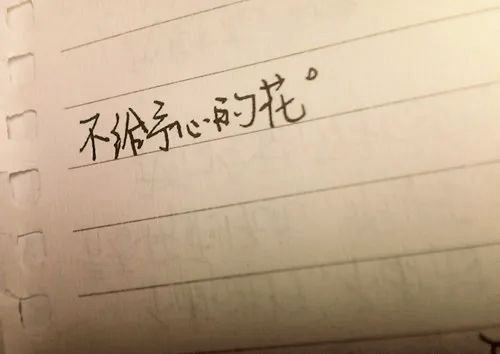 不给予心的花。